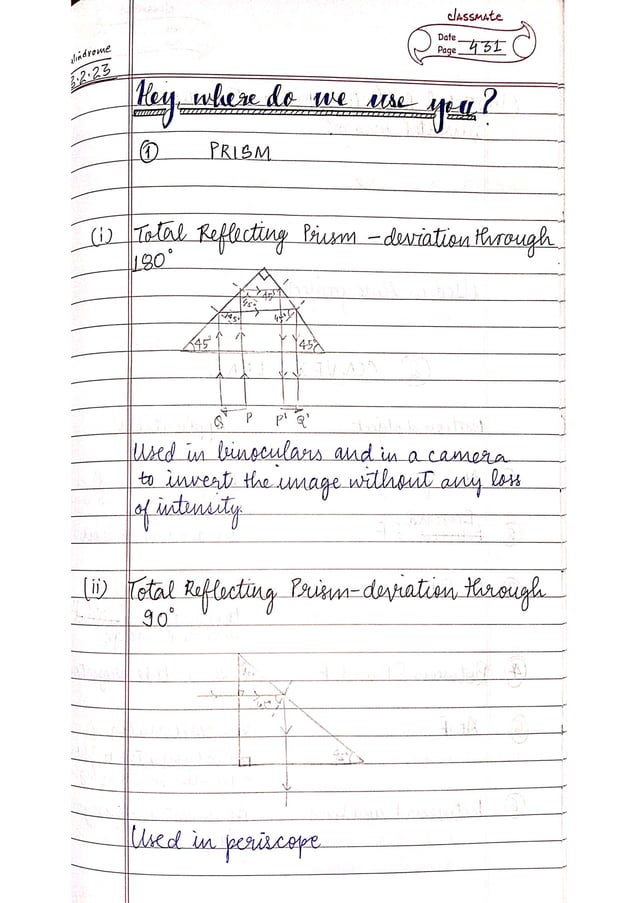 classmate
Date
Page 431
3.2.23
Hey, where do we use you?
① PRISM
(i) Total Reflecting Prism - deviation through
180°
45°
45°
45°
45°
45°
Q P P' Q'
Used in binoculars and in a camera
to invert the image without any loss
of intensity.
(ii) Total Reflecting Prism - deviation through
90°
45°
Used in periscope